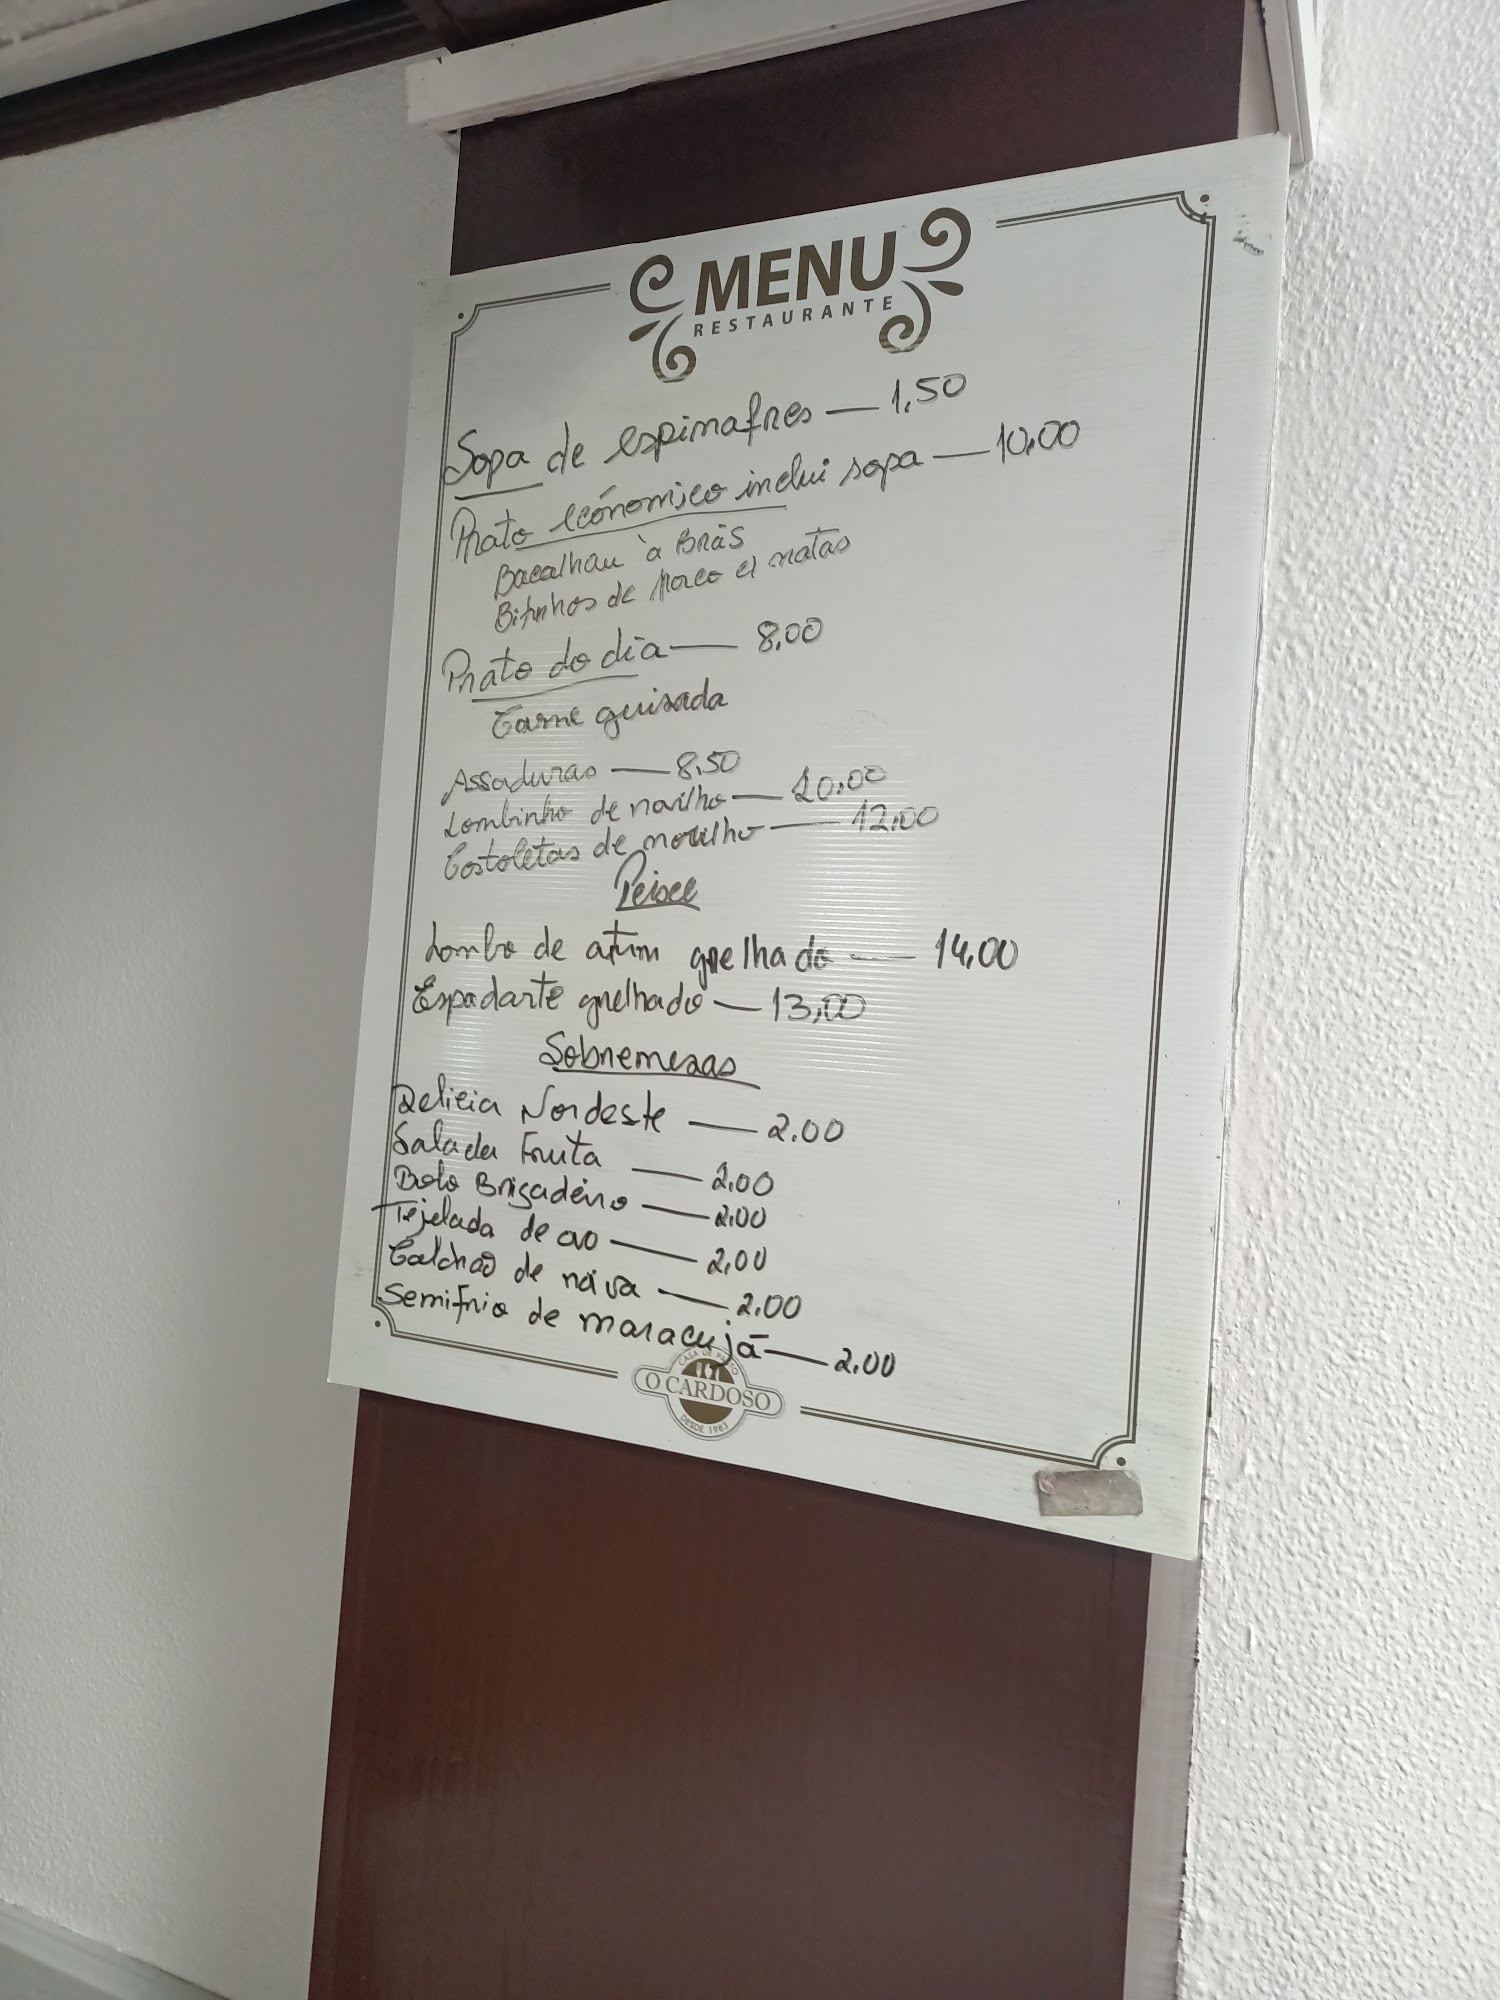 MENU
RESTAURANTE
Sopa de espinafres — 1,50
Prato económico inclui sopa — 10,00
Bacalhau à Brás
Bifinhos de Porco c/ natas
Prato do dia — 8,00
Carne guisada
Assaduras — 8,50
Lombinho de novilho — 10,00
Costoletas de novilho — 12,00
Peixe
Lombo de atum grelhado — 14,00
Espadarte grelhado — 13,00
Sobremesas
Delicia Nordeste — 2.00
Salada Fruta — 2,00
Bolo Brigadeiro — 2,00
Tejelada de ovo — 2,00
Colchão de noiva — 2.00
Semifrio de maracujá — 2.00
CASA DE PASTO
O CARDOSO
DESDE 1983